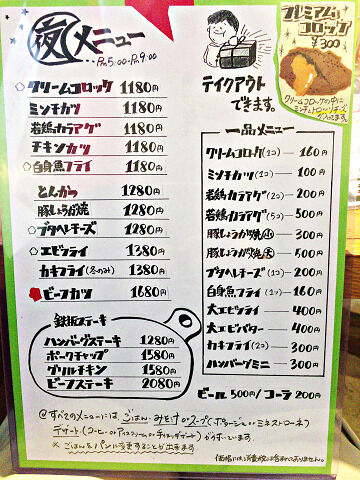 夜メニュー
P.M5:00-P.M9:00
クリームコロッケ 1180円
ミンチカツ 1180円
若鶏カラアゲ 1180円
チキンカツ 1180円
白身魚フライ 1180円
とんかつ 1280円
豚しょうが焼 1280円
ブタヘレチーズ 1280円
エビフライ 1380円
カキフライ(冬のみ) 1380円
ビーフカツ 1680円
鉄板ステーキ
ハンバーグステーキ 1280円
ポークチャップ 1580円
グリルチキン 1580円
ビーフステーキ 2080円
テイクアウト
できます。
プレミアム
コロッケ
¥300
クリームコロッケの中に
一品メニュー
クリームコロッケ(1コ)ー160円
ミンチカツ(1コ)ー100円
若鶏カラアゲ(2コ)ー200円
若鶏カラアゲ(5コ)ー500円
豚しょうが焼(小)ー300円
豚しょうが焼(大)ー500円
ブタヘレチーズ(1コ)ー200円
白身魚フライ(1コ)ー160円
大エビフライー400円
大エビバターー400円
カキフライ(2コ)ー300円
ハンバーグミニー300円
ビール 500円/コーラ 200円
@すべてのメニューには、ごはん・みそ汁orスープ(ポタージュorミネストローネ)
デザート(コーヒーorアイスクリーム
がついています。
※ごはんをパンに変更することが出来ます
価格には、消費税は含まれておりません。